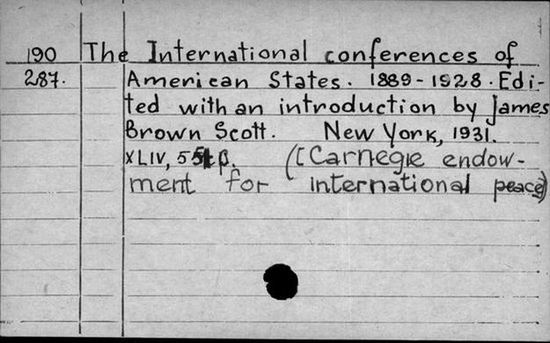 190 The International conferences of
287. American States. 1889-1928. Edi-
ted with an introduction by James
Brown Scott. New York, 1931.
XLIV, p. ([Carnegie endow-
ment for international peace)